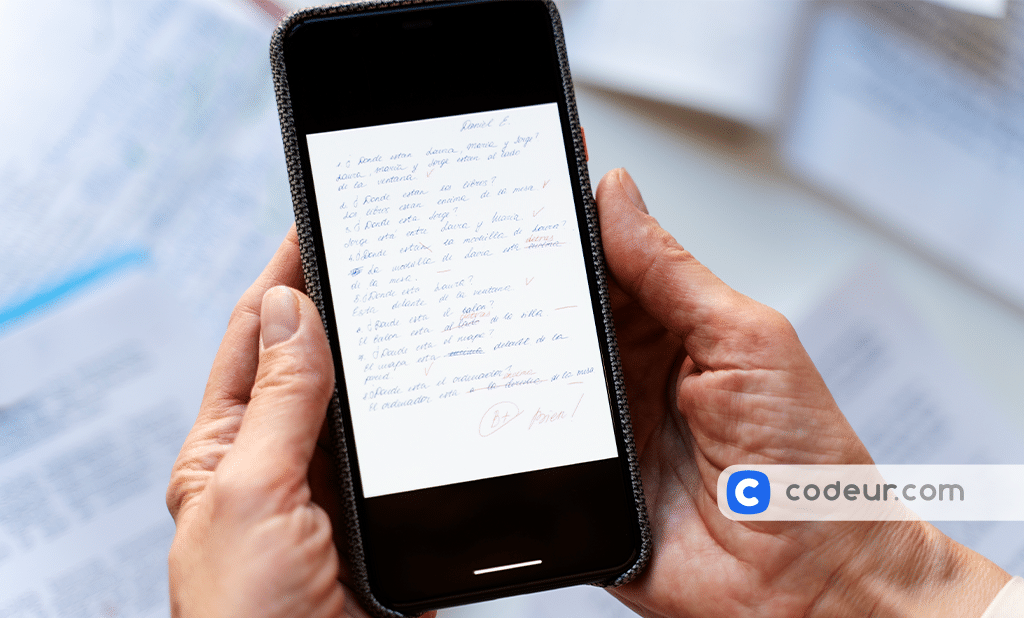 Daniel E.
1. ¿Donde estan Laura, Maria y Jorge?
Laura, Maria y Jorge estan al lado
de la ventana.
2. ¿Donde estan los libros?
Los libros estan encima de la mesa
3. ¿Donde esta Jorge?
Jorge está entre Laura y Maria.
4. ¿Donde está la mochilla de Laura?
detras
La mochilla de Lauria está encima
de la mesa.
5. ¿Donde esta Laura?
Esta delante de la ventana
6. ¿Donde esta el balon?
detras
El balon esta al lado de la silla.
7. ¿Donde esta el mapa?
El mapa esta detable de la
pared
8. ¿Donde esta el ordenador?
encima
El ordenador esta a la derecha de la mesa
B+ Bien!
codeur.com